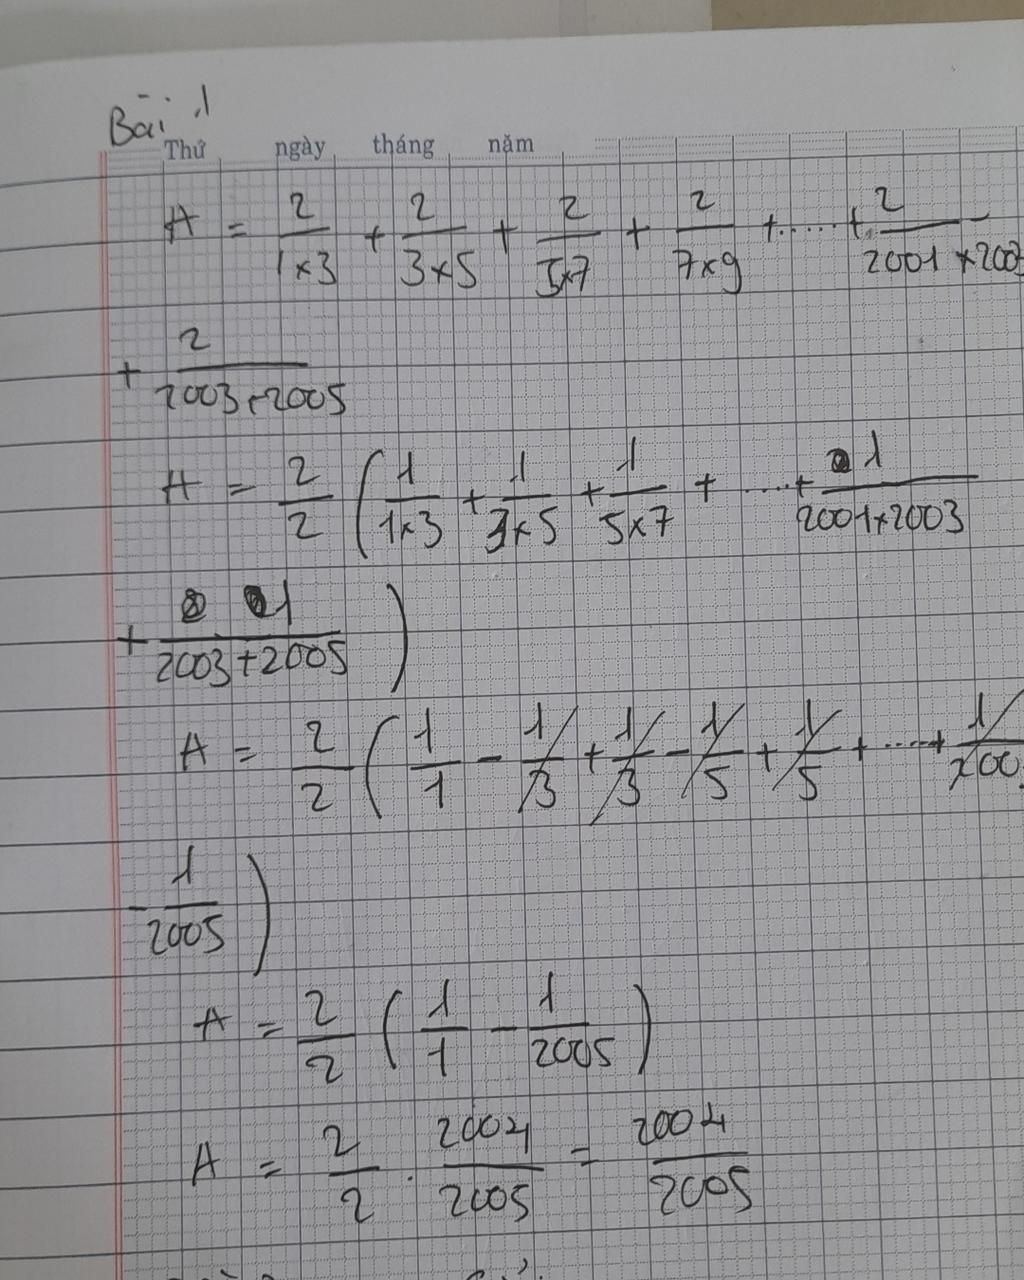 Bài 1
Thứ ngày tháng năm
A = 2/1×3 + 2/3×5 + 2/5×7 + 2/7×9 + ..... + 2/2001×200
+ 2/2003+2005
A = 2/2 ( 1/1×3 + 1/3×5 + 1/5×7 + ....+ 1/2001×2003
+ 1/2003+2005 )
A = 2/2 ( 1/1 - 1/3 + 1/3 - 1/5 + 1/5 + ....+ 1/200
- 1/2005 )
A = 2/2 ( 1/1 - 1/2005 )
A = 2/2 . 2004/2005 = 2004/2005